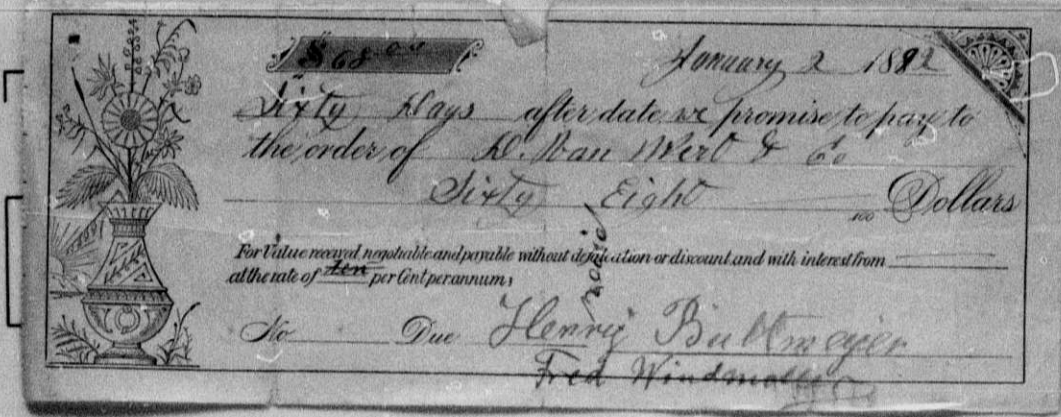 $ 68.00
January 2 1882
Sixty Days after date we promise to pay to
the order of D. Van Wert & Co
Sixty Eight Dollars
100
For Value received negotiable and payable without defalcation or discount and with interest from
at the rate of ten per Cent per annum,
No Due Henry
Fred